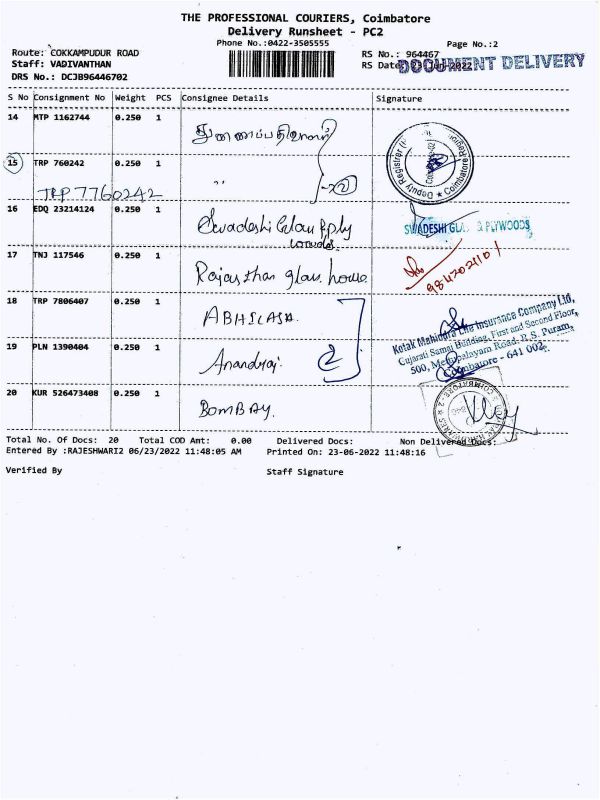 THE PROFESSIONAL COURIERS, Coimbatore
Delivery Runsheet - PC2
Phone No.:0422-3505555
Page No.:2
Route: COKKAMPUDUR ROAD
RS No.: 964467
Staff: VADIVANTHAN
RS Date: 23 Jun-2022
DOCUMENT DELIVERY
DRS No.: DCJB96446702
S No Consignment No Weight PCS Consignee Details Signature
14 MTP 1162744 0.250 1
15 TRP 760242 0.250 1 "
TRP 7760242
Deputy Registrar
Coimbatore Region
16 EDQ 23214124 0.250 1 Swadeshi Glass & ply
SWADESHI GLASS & PLYWOODS
17 TNJ 117546 0.250 1 Rajasthan glass house
9842024101
18 TRP 7806407 0.250 1 ABHILASH
Kotak Mahindra Life Insurance Company Ltd,
Gujarati Samaj Building, First and Second Floor,
500, Mettupalayam Road, R. S. Puram,
Coimbatore - 641 002.
19 PLN 1390404 0.250 1 Anandraj. 2
20 KUR 526473408 0.250 1 BOMBAY.
Total No. Of Docs: 20 Total COD Amt: 0.00 Delivered Docs: Non Delivered Docs:
Entered By :RAJESHWARI2 06/23/2022 11:48:05 AM Printed On: 23-06-2022 11:48:16
Verified By Staff Signature